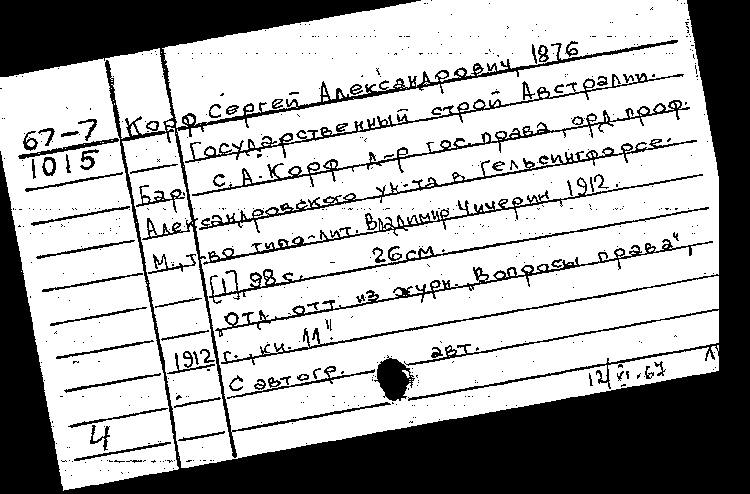 67-7
1015
Корф, Сергей Александрович, 1876
Государственный строй Австралии.
Бар. С. А. Корф, д-р гос. права, орд. проф.
Александровского ун-та в Гельсингфорсе.
М., т-во типо-лит. Владимир Чичерин, 1912.
[1], 98 с. 26 см.
„Отд. отт. из журн. „Вопросы права“,
1912 г., кн. 11“.
С автогр. авт.
12/VI-67
4